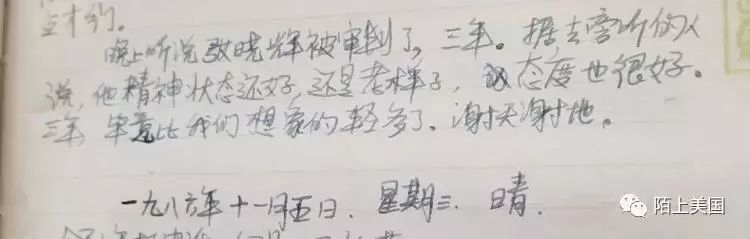 才行。
晚上听说敬晓辉被审判了，三年。据去旁听的人
说，他精神状态还好，还是老样子，态度也很好。
三年，毕竟比我们想象的轻多了。谢天谢地。
一九八六年十一月五日．星期三．晴．
陌上美国